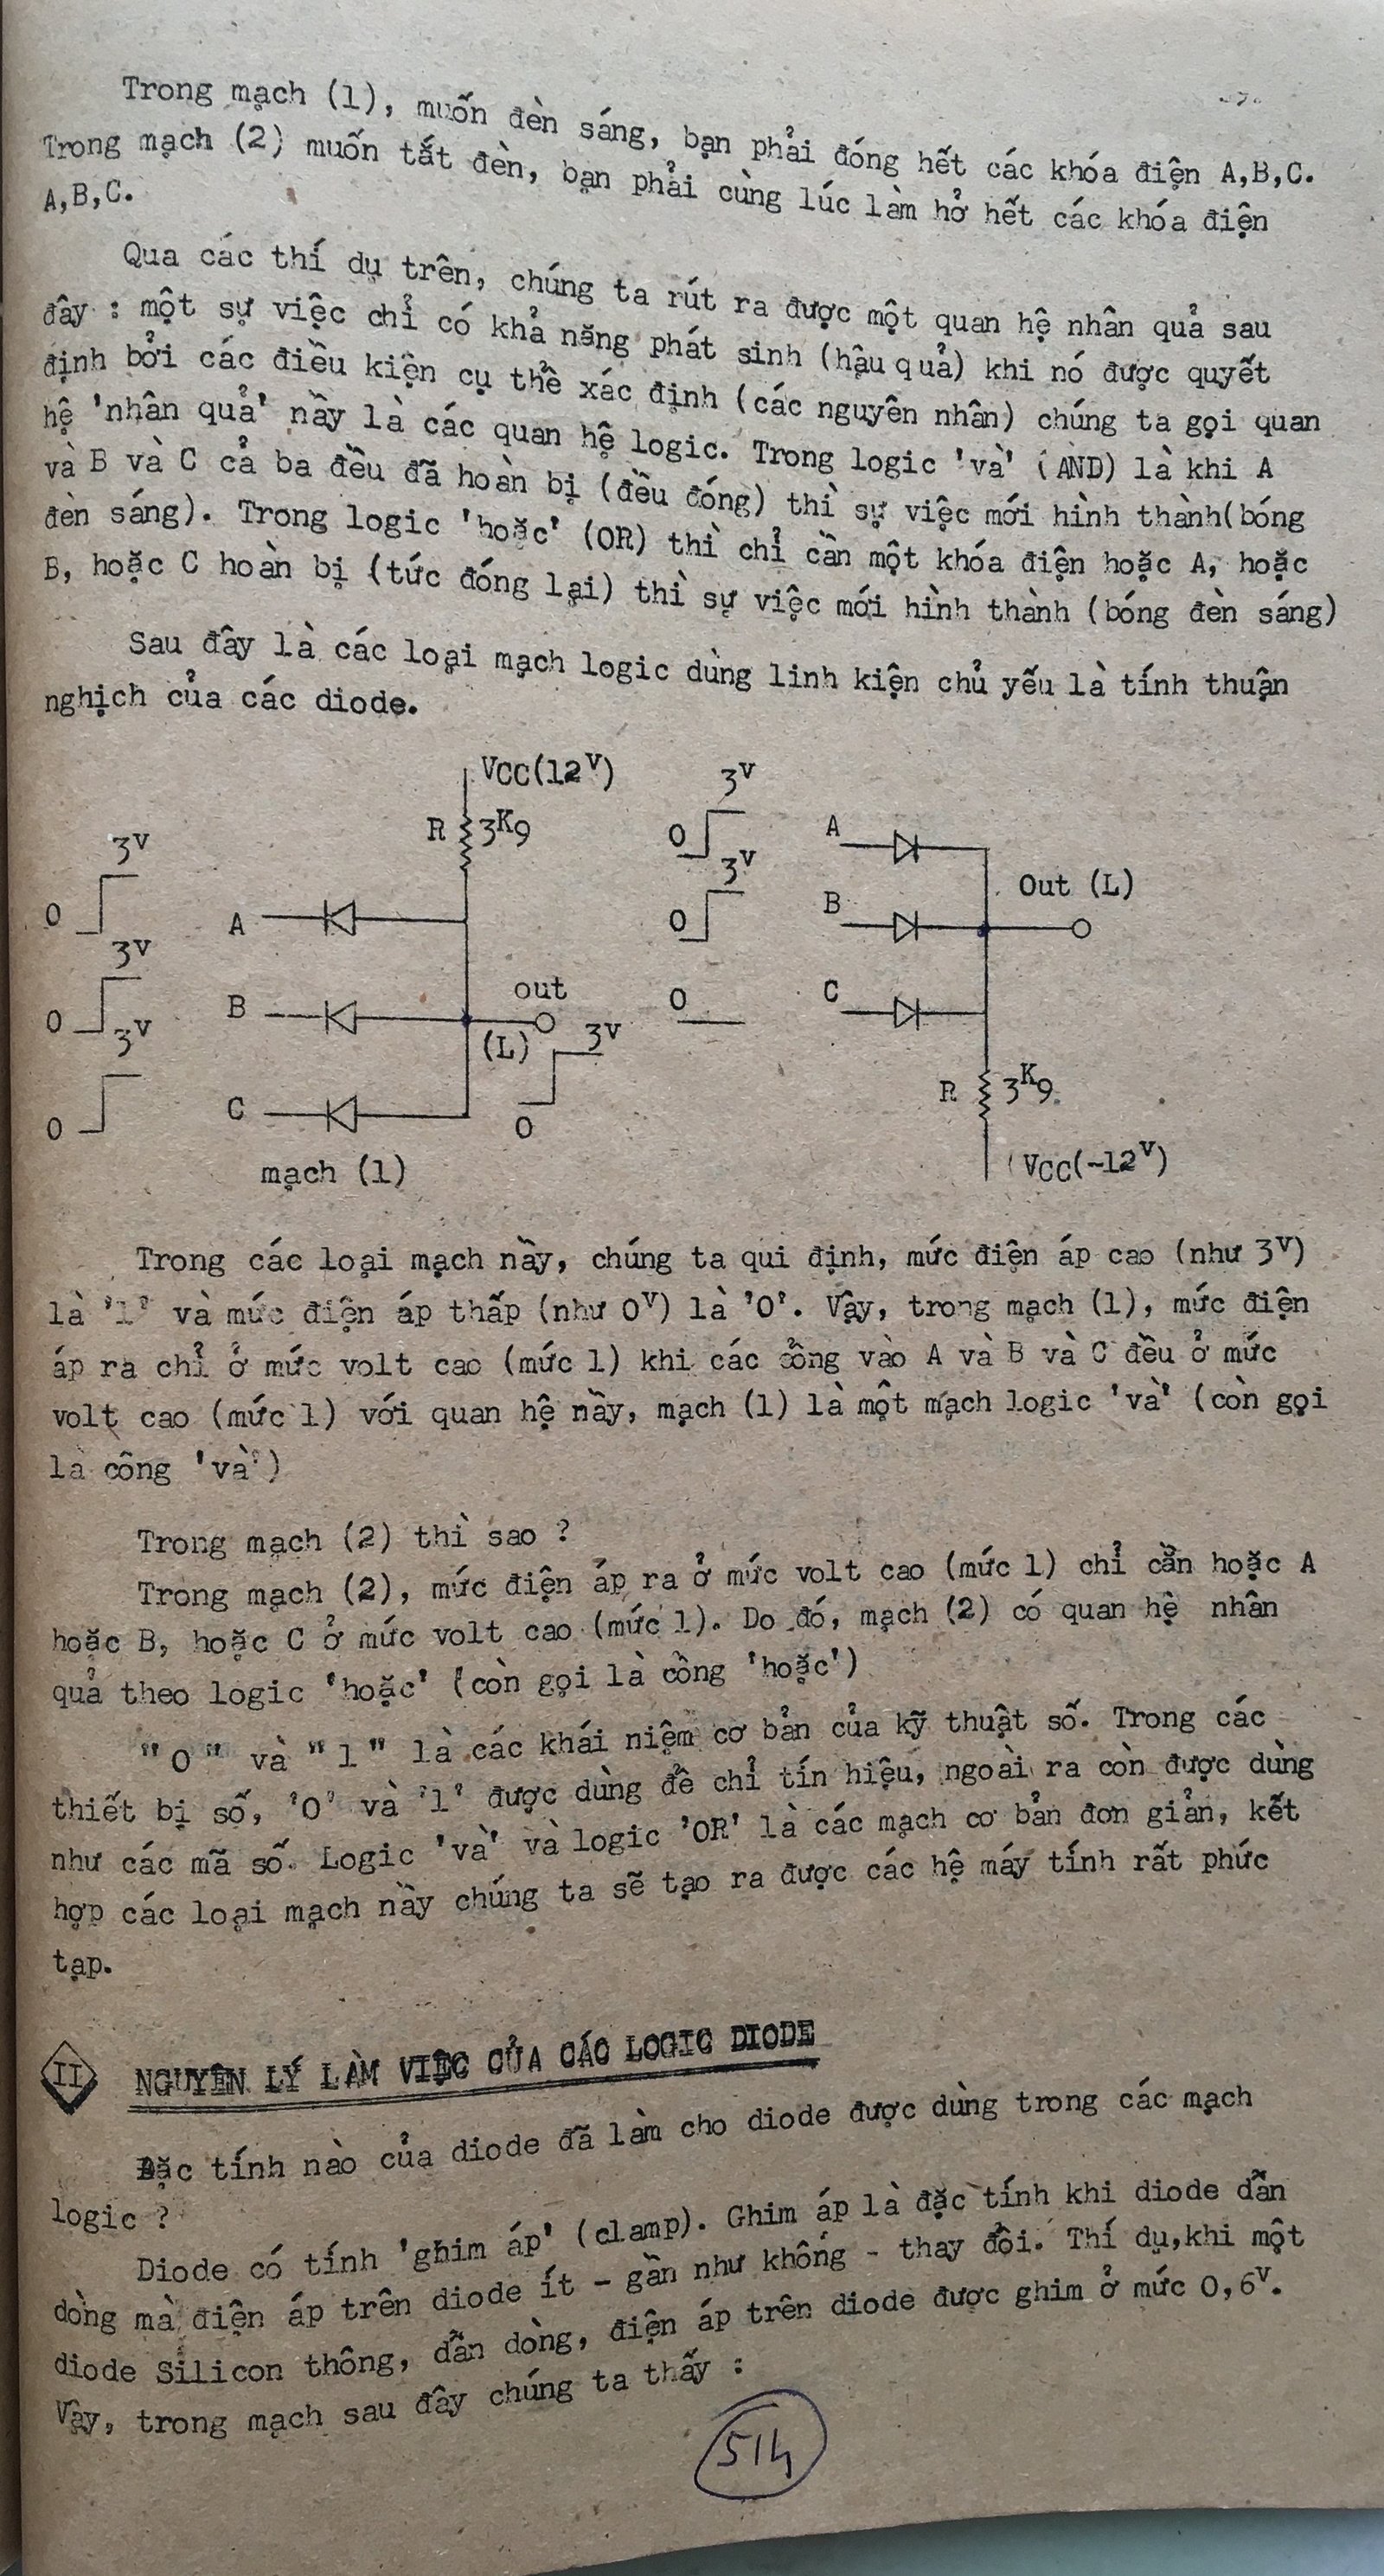 Trong mạch (1), muốn đèn sáng, bạn phải đóng hết các khóa điện A,B,C.
Trong mạch (2) muốn tắt đèn, bạn phải cùng lúc làm hở hết các khóa điện
A,B,C.
Qua các thí dụ trên, chúng ta rút ra được một quan hệ nhân quả sau
đây : một sự việc chỉ có khả năng phát sinh (hậu quả) khi nó được quyết
định bởi các điều kiện cụ thể xác định (các nguyên nhân) chúng ta gọi quan
hệ 'nhân quả' nầy là các quan hệ logic. Trong logic 'và' (AND) là khi A
và B và C cả ba đều đã hoàn bị (đều đóng) thì sự việc mới hình thành(bóng
đèn sáng). Trong logic 'hoặc' (OR) thì chỉ cần một khóa điện hoặc A, hoặc
B, hoặc C hoàn bị (tức đóng lại) thì sự việc mới hình thành (bóng đèn sáng)
Sau đây là các loại mạch logic dùng linh kiện chủ yếu là tính thuận
nghịch của các diode.
VCC(12V)
R 3K9
3V
0
A
3V
0
B
3V
0
C
out
(L)
3V
0
mạch (1)
3V
0
A
3V
0
B
Out (L)
0
C
R 3K9
VCC(-12V)
Trong các loại mạch nầy, chúng ta qui định, mức điện áp cao (như 3V)
là '1' và mức điện áp thấp (như 0V) là '0'. Vậy, trong mạch (1), mức điện
áp ra chỉ ở mức volt cao (mức 1) khi các cổng vào A và B và C đều ở mức
volt cao (mức 1) với quan hệ nầy, mạch (1) là một mạch logic 'và' (còn gọi
là cổng 'và')
Trong mạch (2) thì sao ?
Trong mạch (2), mức điện áp ra ở mức volt cao (mức 1) chỉ cần hoặc A
hoặc B, hoặc C ở mức volt cao (mức 1). Do đó, mạch (2) có quan hệ nhân
quả theo logic 'hoặc' (còn gọi là cổng 'hoặc')
"0" và "1" là các khái niệm cơ bản của kỹ thuật số. Trong các
thiết bị số, '0' và '1' được dùng để chỉ tín hiệu, ngoài ra còn được dùng
như các mã số. Logic 'và' và logic 'OR' là các mạch cơ bản đơn giản, kết
hợp các loại mạch nầy chúng ta sẽ tạo ra được các hệ máy tính rất phức
tạp.
II NGUYÊN LÝ LÀM VIỆC CỦA CÁC LOGIC DIODE
Đặc tính nào của diode đã làm cho diode được dùng trong các mạch
logic ?
Diode có tính 'ghim áp' (clamp). Ghim áp là đặc tính khi diode dẫn
dòng mà điện áp trên diode ít - gần như không - thay đổi. Thí dụ,khi một
diode Silicon thông, dẫn dòng, điện áp trên diode được ghim ở mức 0,6V.
Vậy, trong mạch sau đây chúng ta thấy :
514